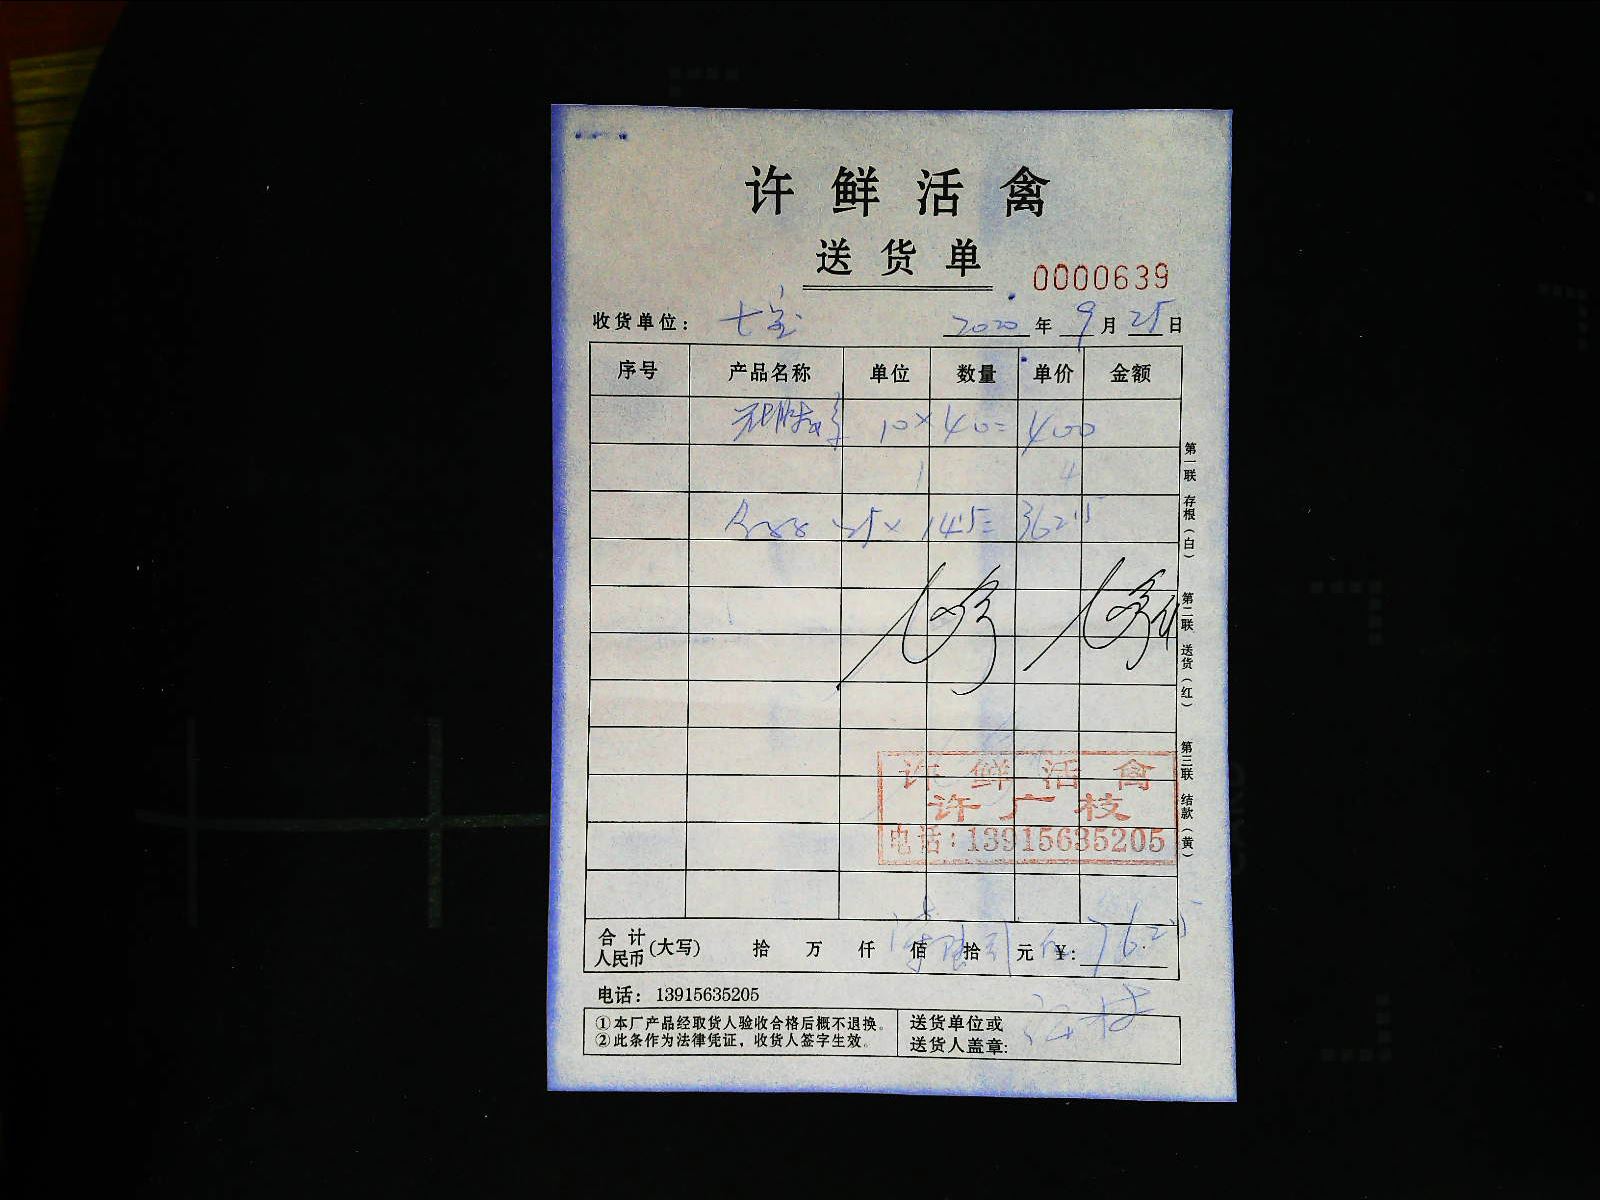 许鲜活禽
送货单
0000639
收货单位： 七宝 2020 年 9 月 25 日
序号 产品名称 单位 数量 单价 金额
10 × 40 = 400
25 × 14.5 = 362.5
许鲜活禽
许广枝
电话：13915635205
合计人民币(大写) 拾 万 仟 佰 拾 元 ¥: 762.5
电话：13915635205
①本厂产品经取货人验收合格后概不退换。
②此条作为法律凭证，收货人签字生效。
送货单位或
送货人盖章:
第一联 存根（白）
第二联 送货（红）
第三联 结款（黄）